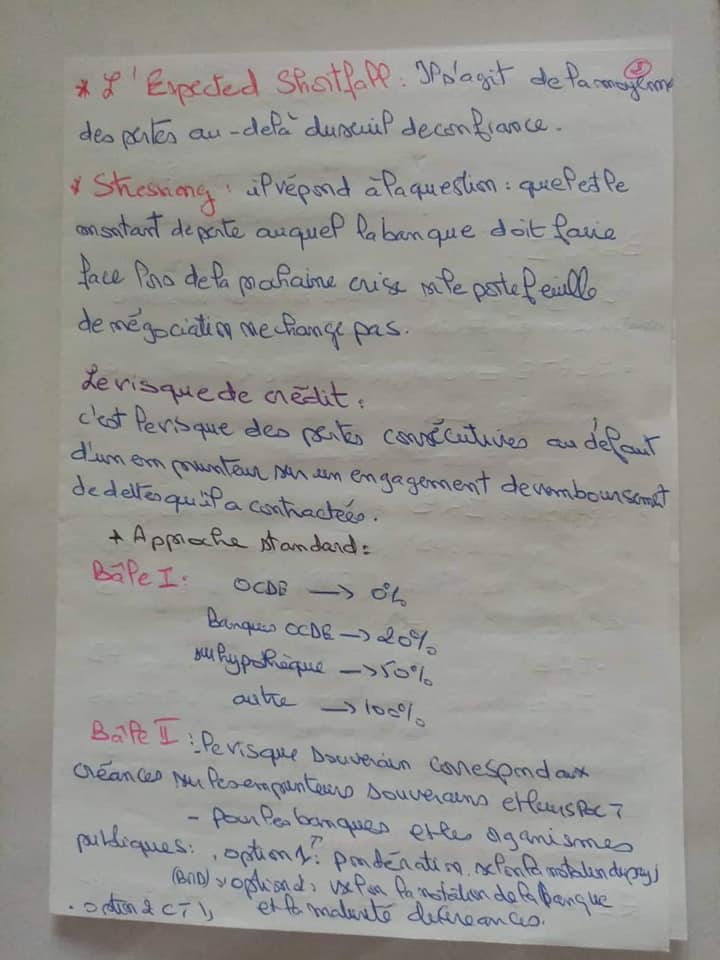 * L'Expected Shortfall : Il s'agit de la moyenne
des pertes au-delà du seuil de confiance.
* Stressing : il répond à la question : quel est le
montant de perte auquel la banque doit faire
face lors de la prochaine crise si le portefeuille
de négociation ne change pas.
Le risque de crédit :
c'est le risque des pertes consécutives au défaut
d'un emprunteur sur un engagement de remboursement
de dettes qu'il a contractées.
* Approche standard :
Bâle I : OCDE → 0%
Banques OCDE → 20%
sur hypothèque → 50%
autre → 100%
Bâle II : le risque souverain correspond aux
créances sur les emprunteurs souverains et leurs BC
- pour les banques et les organismes
publiques : , option 1 : pondération selon la notation du pays
(BMD) option 2 : selon la notation de la banque
. option 2 CT et la maturité de créances.